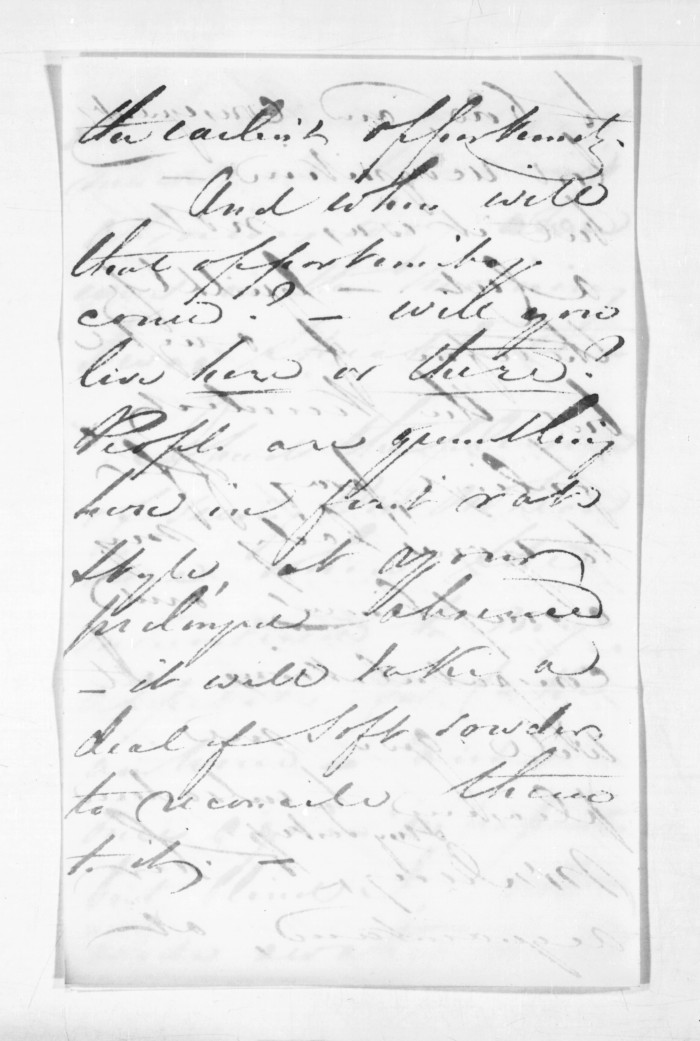 the earliest opportunity.
And when will
that opportunity
come? - will you
live here or there?
People are grumbling
here in first rate
style, at your
prolonged absence
- it will take a
deal of soft sowder
to reconcile them
to it. -